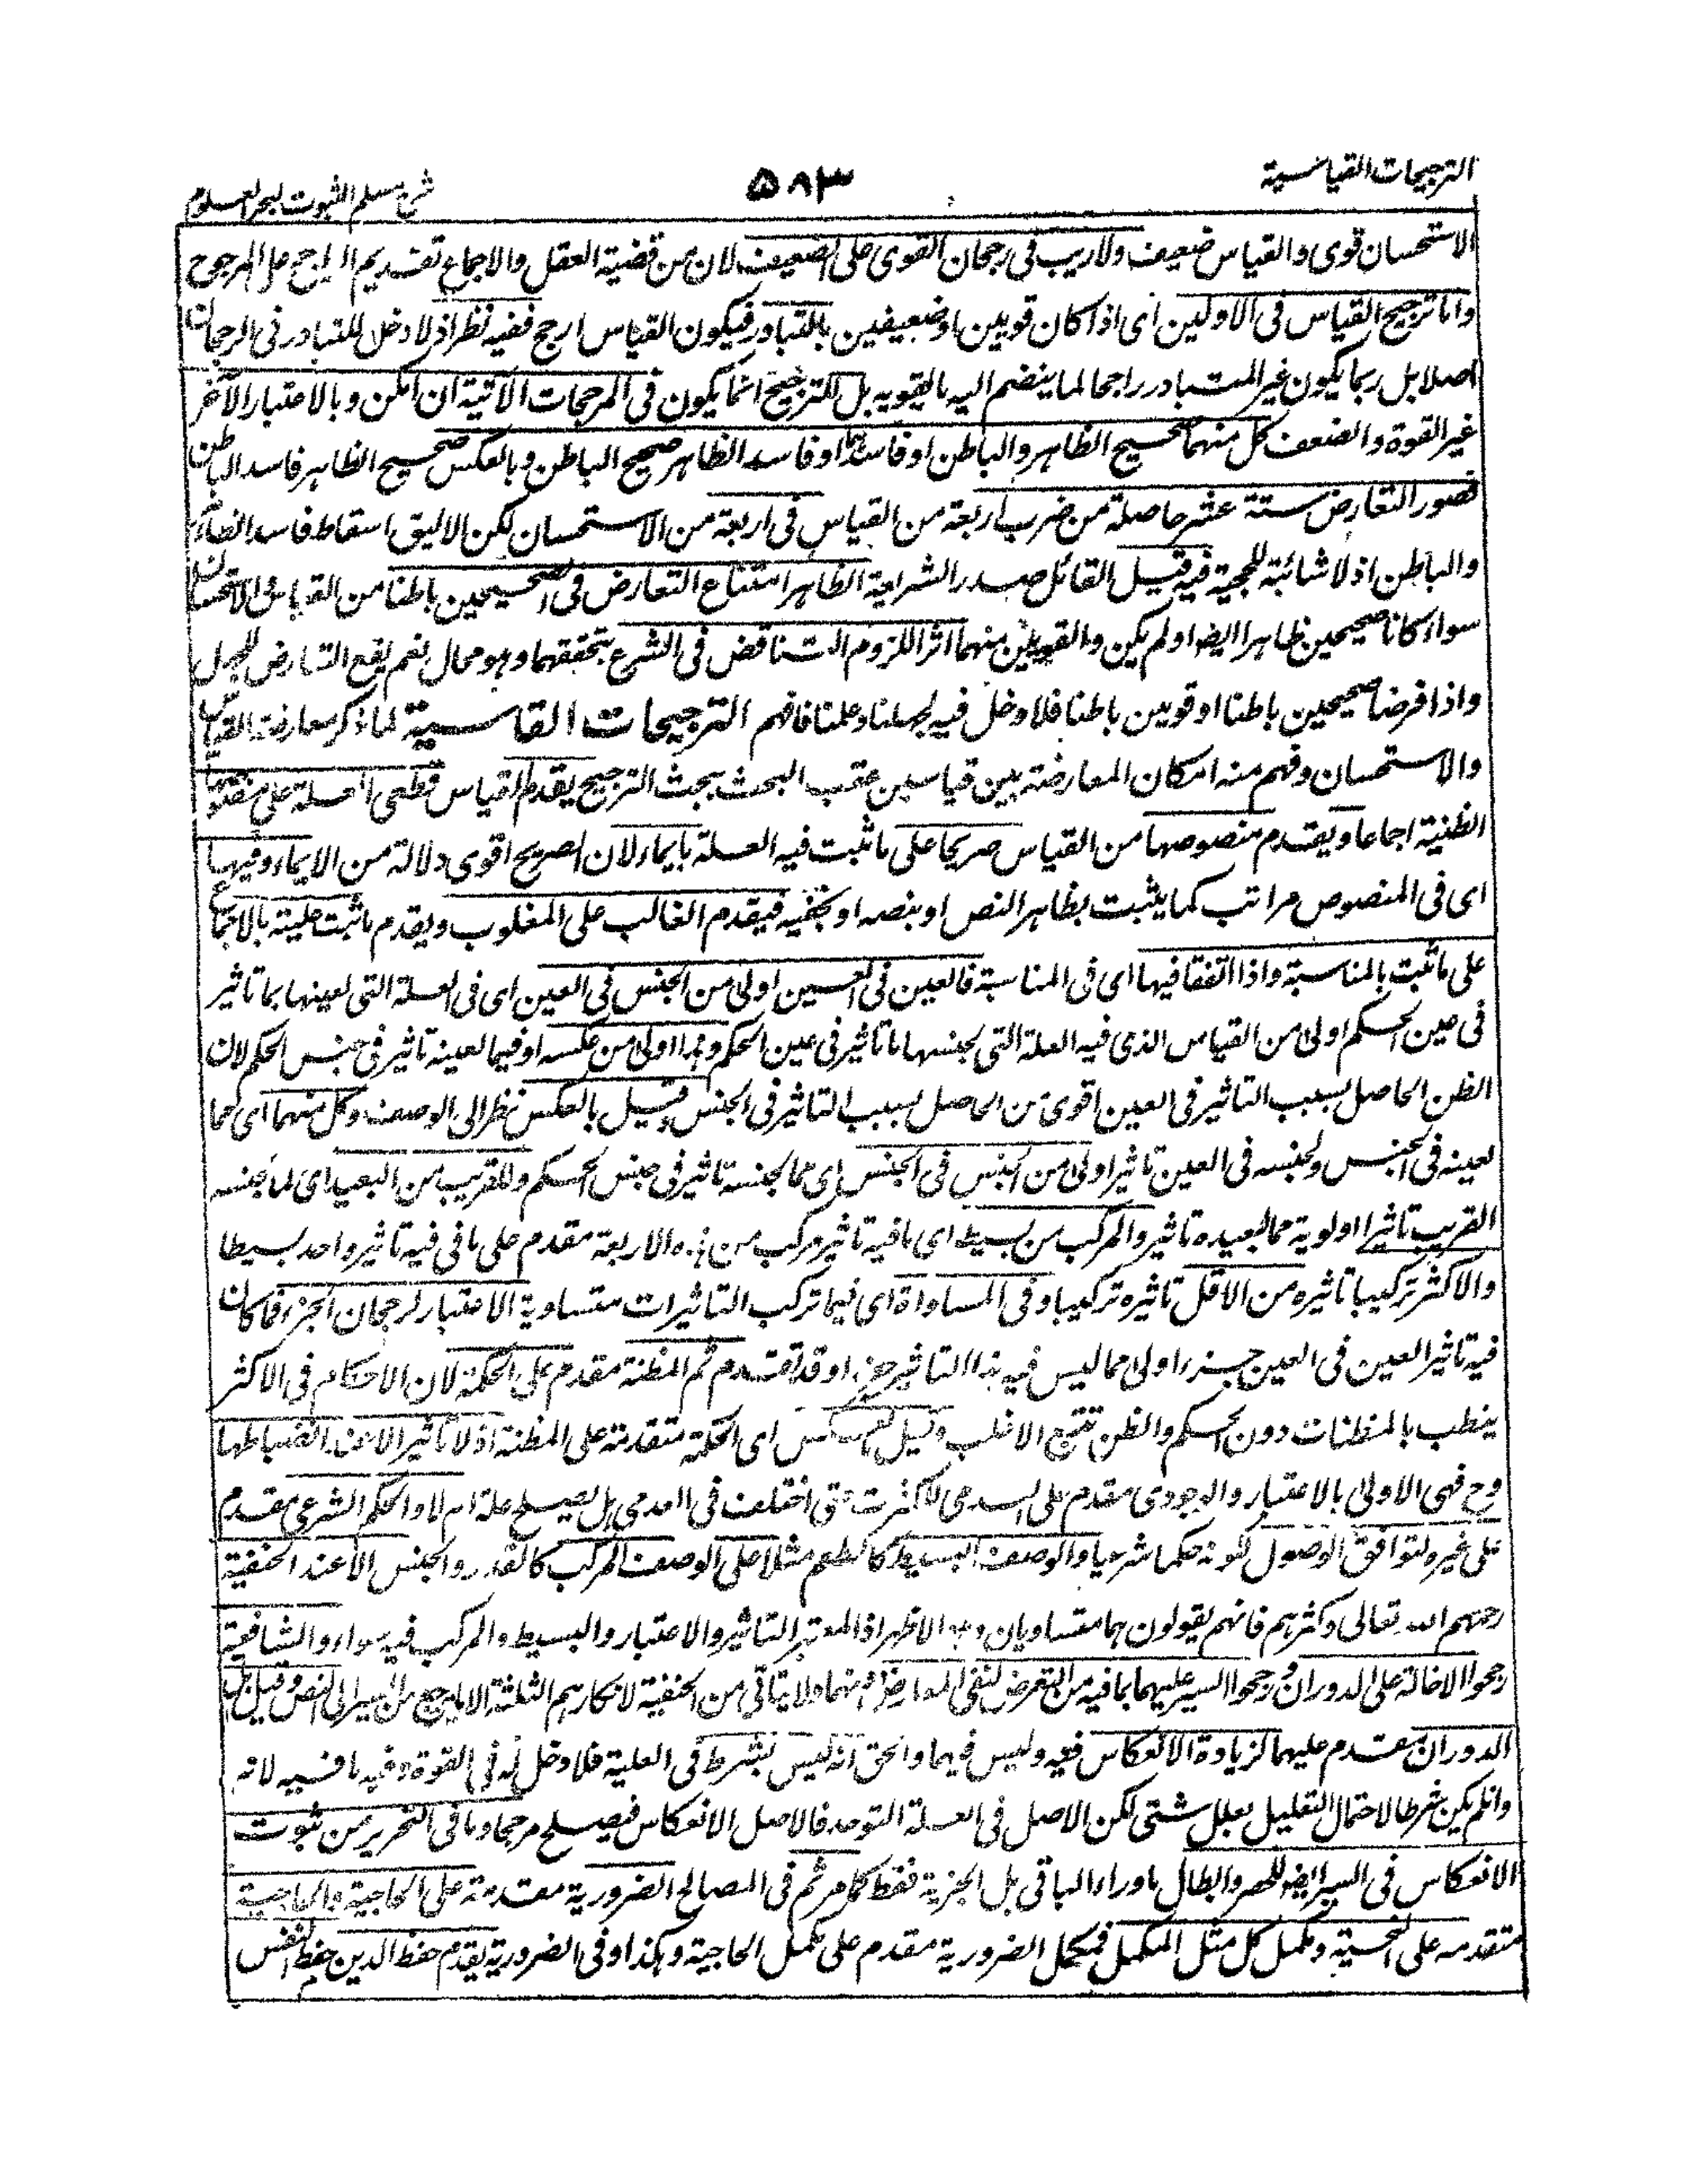 الترجيحات القياسية
۵۸۳
شرح مسلم الثبوت لبحر العلوم
الاستحسان قوى والقياس ضعيف ولاريب فى رجحان القوى على الضعيف لان من قضية العقل والاجماع تقديم الراجح على المرجوح
واما ترجيح القياس فى الاولين اى اذا كان قويين او ضعيفين بالتبادر فيكون القياس ارجح ففيه نظر اذ لا دخل للتبادر فى الرجحان
اصلا بل ربما يكون غير المتبادر راجحا لما ينضم اليه بالتقويه بل الترجيح انما يكون فى المرجحات الآتية ان امكن وبالاعتبار الآخر
غير القوة والضعف كل منهما صحيح الظاهر والباطن او فاسدهما او فاسد الظاهر صحيح الباطن وبالعكس صحيح الظاهر فاسد الباطن
فصور التعارض ستة عشر حاصلة من ضرب اربعة من القياس فى اربعة من الاستحسان لكن الاليق اسقاط فاسد الظاهر
والباطن اذ لا شائبة للحجية فيه قيل القائل صدر الشريعة الظاهر امتناع التعارض فى الصحيحين باطنا من القياس والاستحسان
سواء كانا صحيحين ظاهرا ايضا او لم يكن والقويين منهما اثرا للزوم التناقض فى الشرع بتحققهما وهو محال نعم يقع التعارض للجهل
واذا فرضا صحيحين باطنا او قويين باطنا فلا دخل فيه لجهلنا وعلمنا فافهم الترجيحات القاسية لما ذكر معارضة القياس
والاستحسان وفهم منه امكان المعارضة بين قياسين عقب البحث ببحث الترجيح يقدم القياس قطعى العلة على مظنونها
الظنية اجماعا ويقدم منصوصها من القياس صريحا على ما ثبت فيه العلة بايماء لان الصريح اقوى دلالة من الايماء وفيها
اى فى المنصوص مراتب كما يثبت بظاهر النص او بنصه او بخفيه فيقدم الغالب على المغلوب ويقدم ما ثبت علية بالاجماع
على ما ثبت بالمناسبة واذا اتفقا فيها اى فى المناسبة فالعين فى العين اولى من الجنس فى العين اى فى العلة التى لعينها بما تاثير
فى عين الحكم اولى من القياس الذى فيه العلة التى لجنسها ما تاثير فى عين الحكم وهذا اولى من عكسه او فيما لعينه تاثير فى جنس الحكم لان
الظن الحاصل بسبب التاثير فى العين اقوى من الحاصل بسبب التاثير فى الجنس وقيل بالعكس نظرا الى الوصف وكل منهما اى مما
لعينه فى الجنس ولجنسه فى العين تاثير اولى من الجنس فى الجنس اى مما لجنسه تاثير فى جنس الحكم وللقريب من البعيد اى لما لجنسه
القريب تاثير اولوية مما لبعيده تاثير والمركب من بسيط اى ما فيه تاثير مركب من هذه الاربعة مقدم على ما فى فيه تاثير واحد بسيطا
والاكثر تركيبا تاثيره من الاقل تاثيره تركيبا وفى المساواة اى فيما تركب التاثيرات متساوية الاعتبار لرجحان الجزء فما كان
فيه تاثير العين فى العين جزء اولى مما ليس فيه هذا التاثير جزءا وقد تقدم ثم المظنة مقدم على الحكمة لان الاحكام فى الاكثر
ينطب بالمظنات دون الحكم والظن تتبع الاغلب وقيل بالعكس اى الحكمة متقدمة على المظنة اذ لا تاثير الا عند انضباطها
وح فهى الاولى بالاعتبار والوجودى مقدم على العدمى للكثرت حتى اختلف فى العدمى هل يصلح علة ام لا والحكم الشرعى مقدم
على غيره لتوافق الوصول لكونه حكما شرعيا والوصف البسيط كالطعم مثلا على الوصف المركب كالقدر والجنس الا عند الحنفية
رحمهم الله تعالى وكثرهم فانهم يقولون هما متساويان وهو الاظهر اذ المعتبر التاثير والاعتبار والبسيط والمركب فيه سواء والشافعية
رجحوا الاخالة على الدوران ورجحوا السبر عليهما بما فيه من التعرض لنفى المعارض دونهما ولا يتاتى من الحنفية لانكارهم الثلثة الا ما يرجع من السبر الى النص وقيل بل
الدوران مقدم عليهما لزيادة الانعكاس فيه وليس فيهما والحق انه ليس بشرط فى العلية فلا دخل له فى القوة وفيه ما فيه لانه
وان لم يكن شرطا لاحتمال التعليل بعلل شتى لكن الاصل فى العلة التوحد فالاصل الانعكاس فيصلح مرجحا وما فى التحرير من ثبوت
الانعكاس فى السبر ايضا للحصر وابطال ما وراء الباقى بل الجزية فقط كما مر ثم فى المصالح الضرورية مقدمة على الحاجية والحاجية
متقدمه على التحسنية ومكمل كل مثل المكمل فمكمل الضرورية مقدم على مكمل الحاجية وهكذا وفى الضرورية يقدم حفظ الدين حفظ النفس